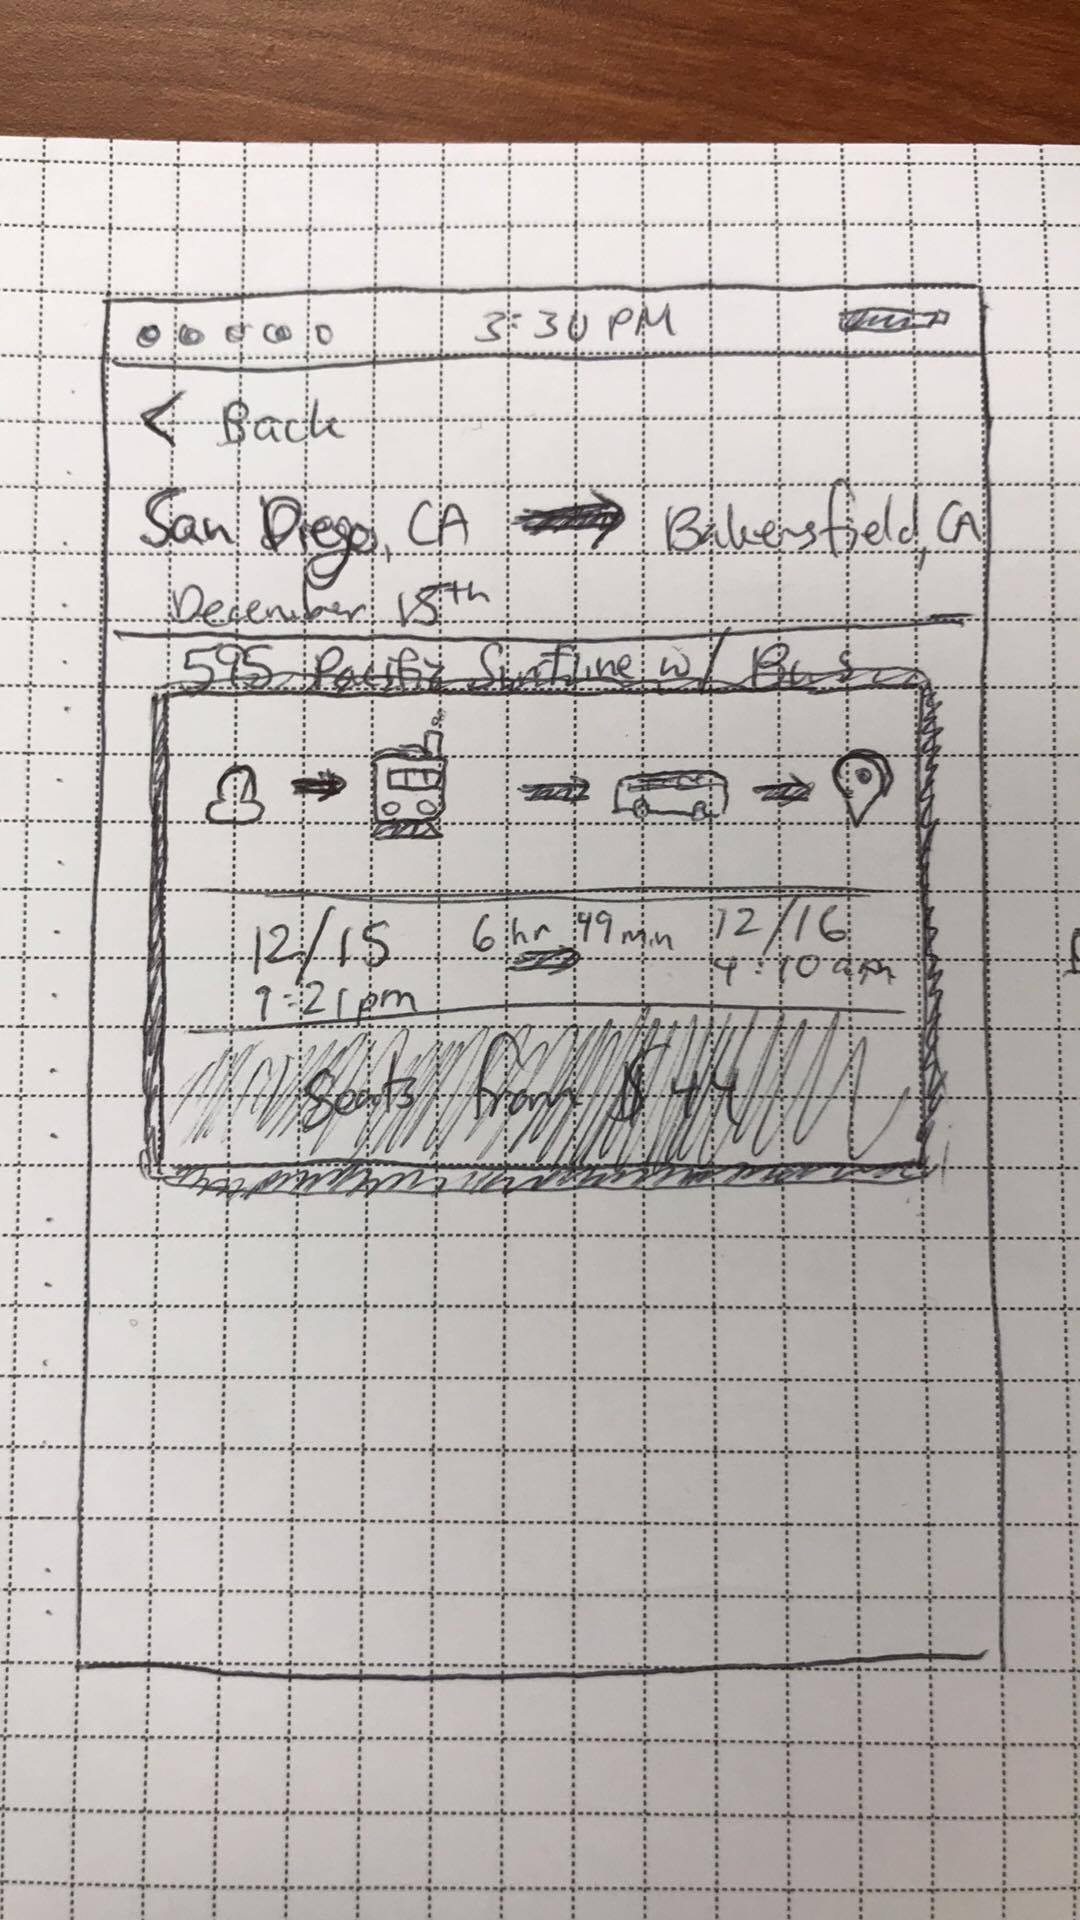 3:30 PM
< Back
San Diego, CA → Bakersfield, CA
December 15th
595 Pacific Surfline w/ Bus
12/15 6 hr 49 min 12/16
9:21pm 4:10am
Seats from $44